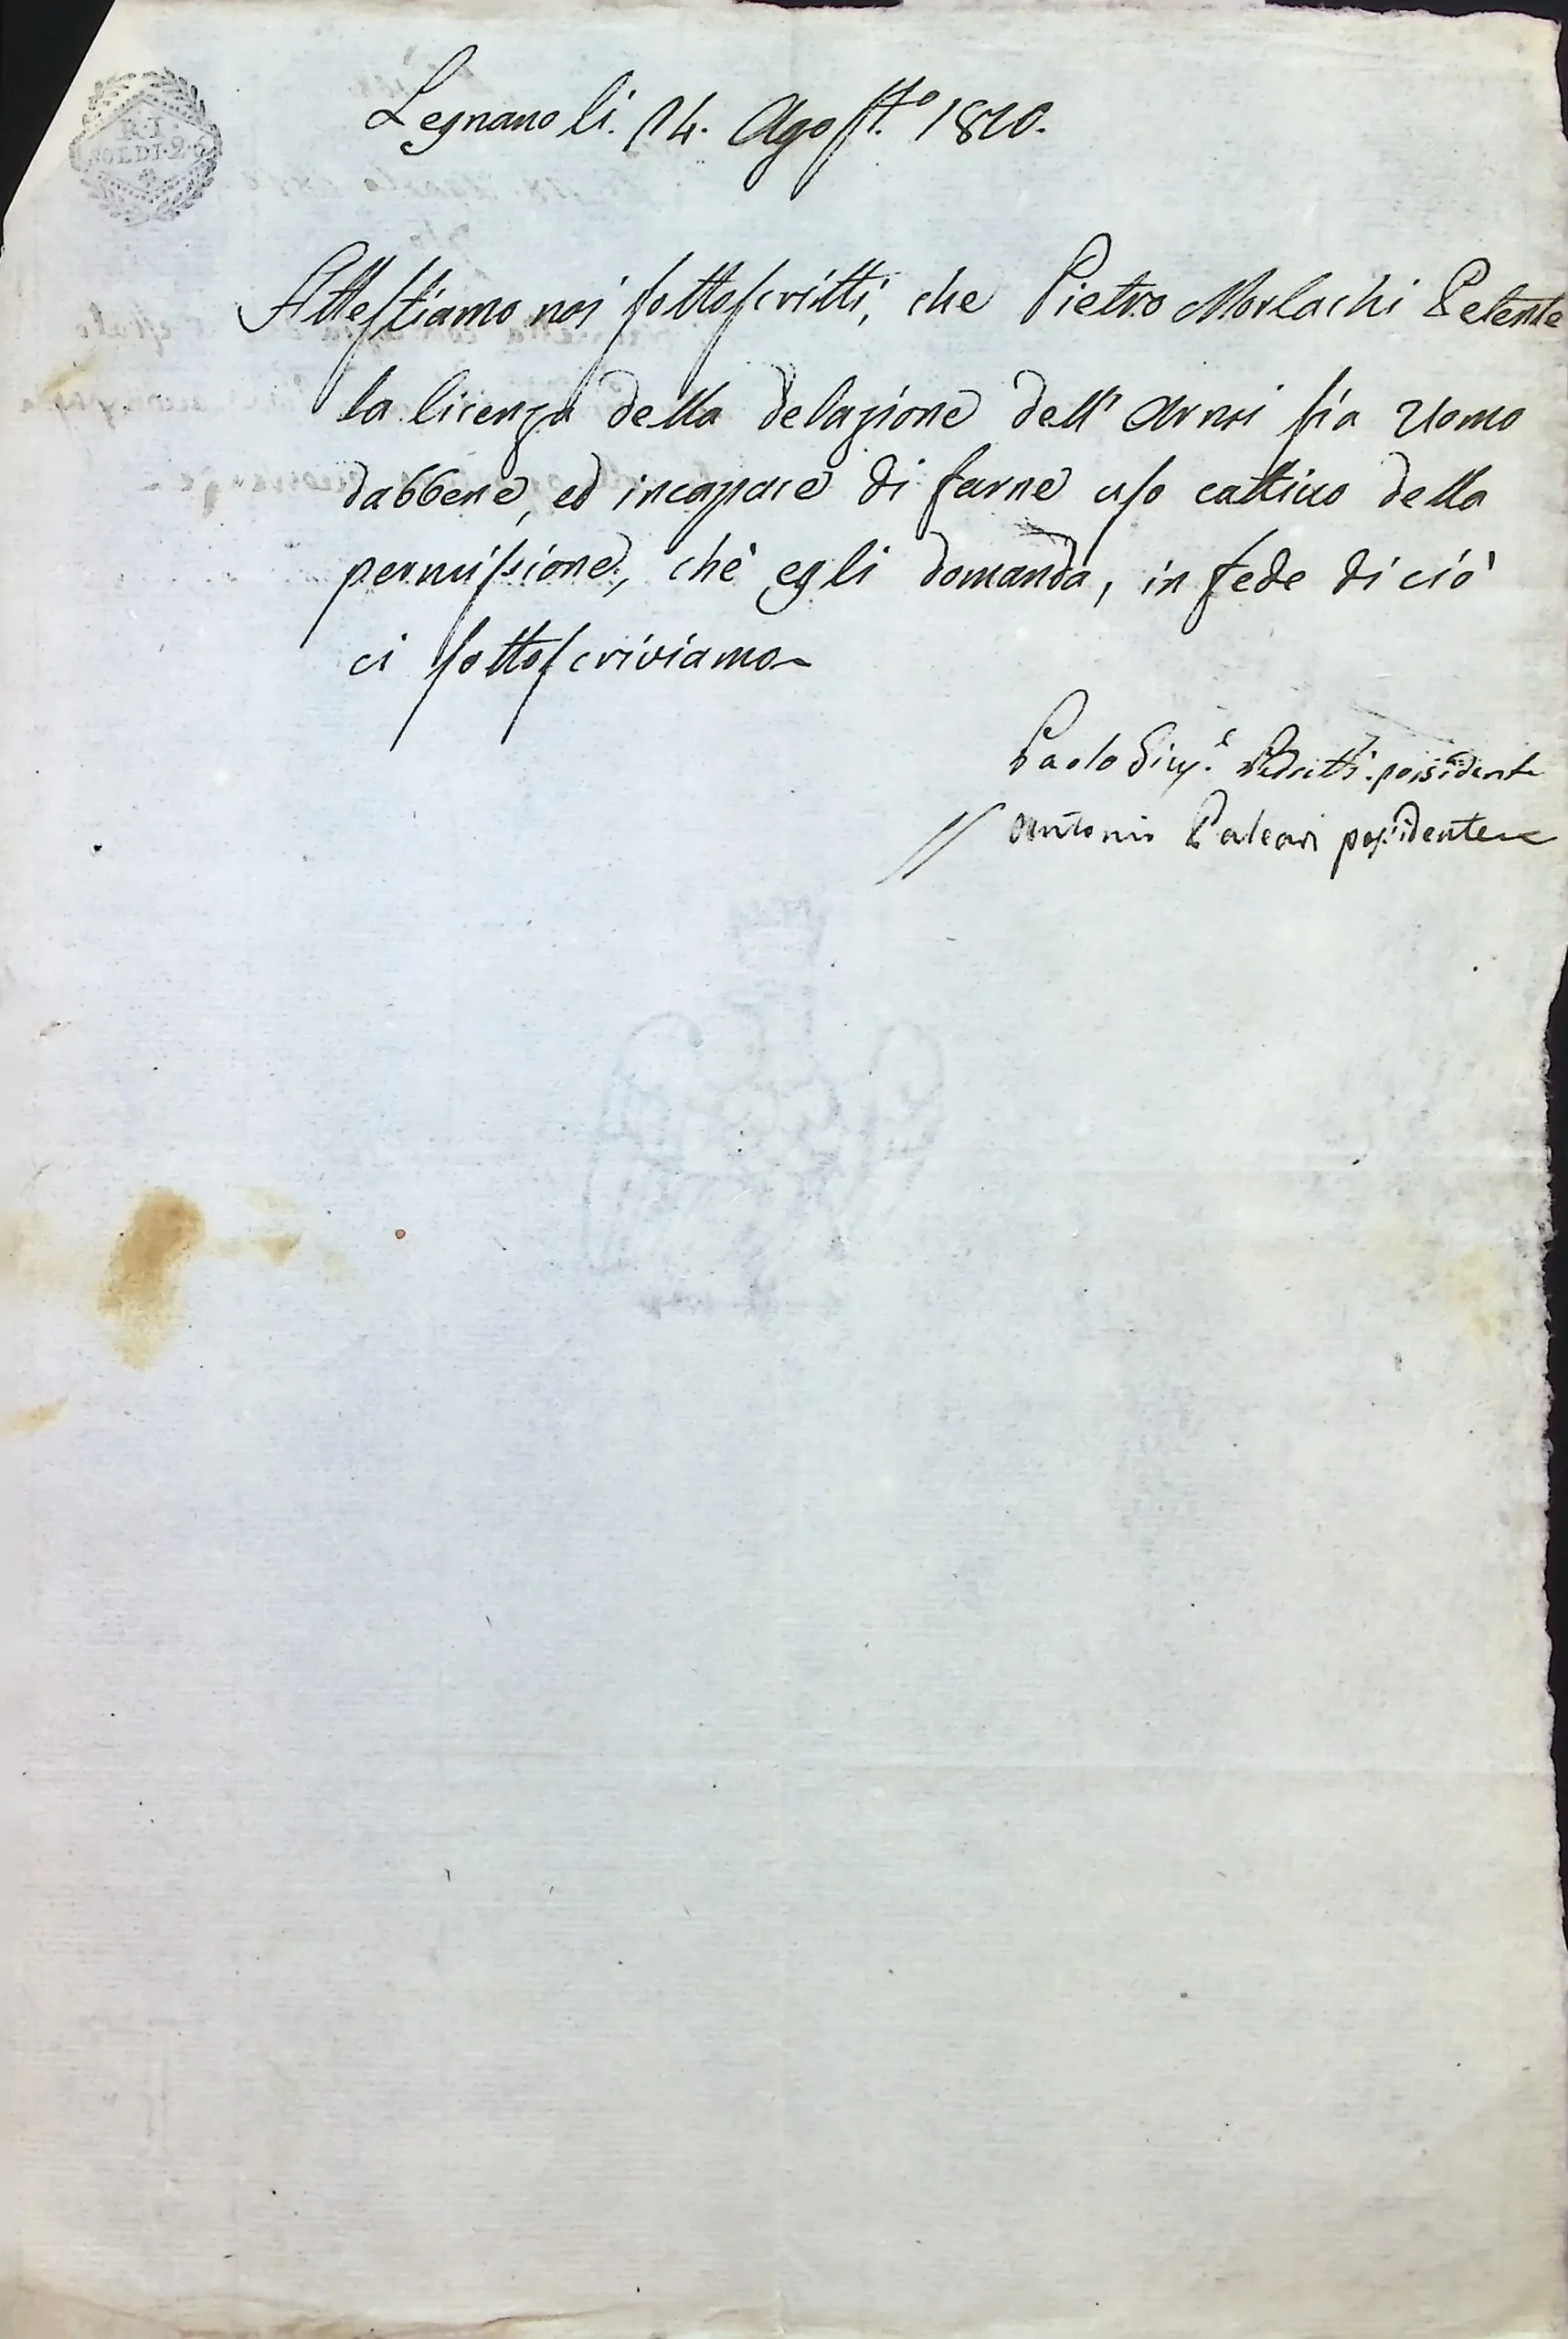 Legnano li. 14. Agosto 1810.
Attestiamo noi sottoscritti, che Pietro Morlachi Petente
la licenza della delazione dell' Armi sia Uomo
dabbene, ed incapace di farne uso cattivo della
permissione, chè egli domanda, in fede di ciò
ci sottoscriviamo
Paolo possidente
Antonio Paleari possidente